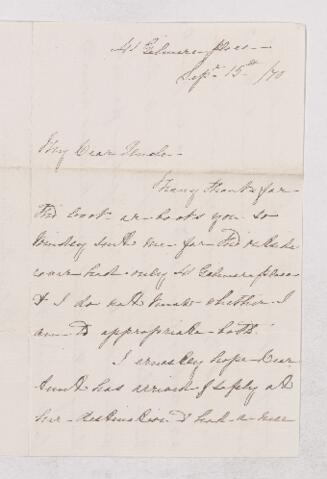 41 Gilmore place
Sepr. 15th /70
My Dear Uncle
Many thanks for
the book or books you so
kindly sent me for the
cover had only 41 Gilmore place
& I do not know whether I
am to appropriate both.
I hope Dear
Aunt has arrived safely at
her destination & had a nice